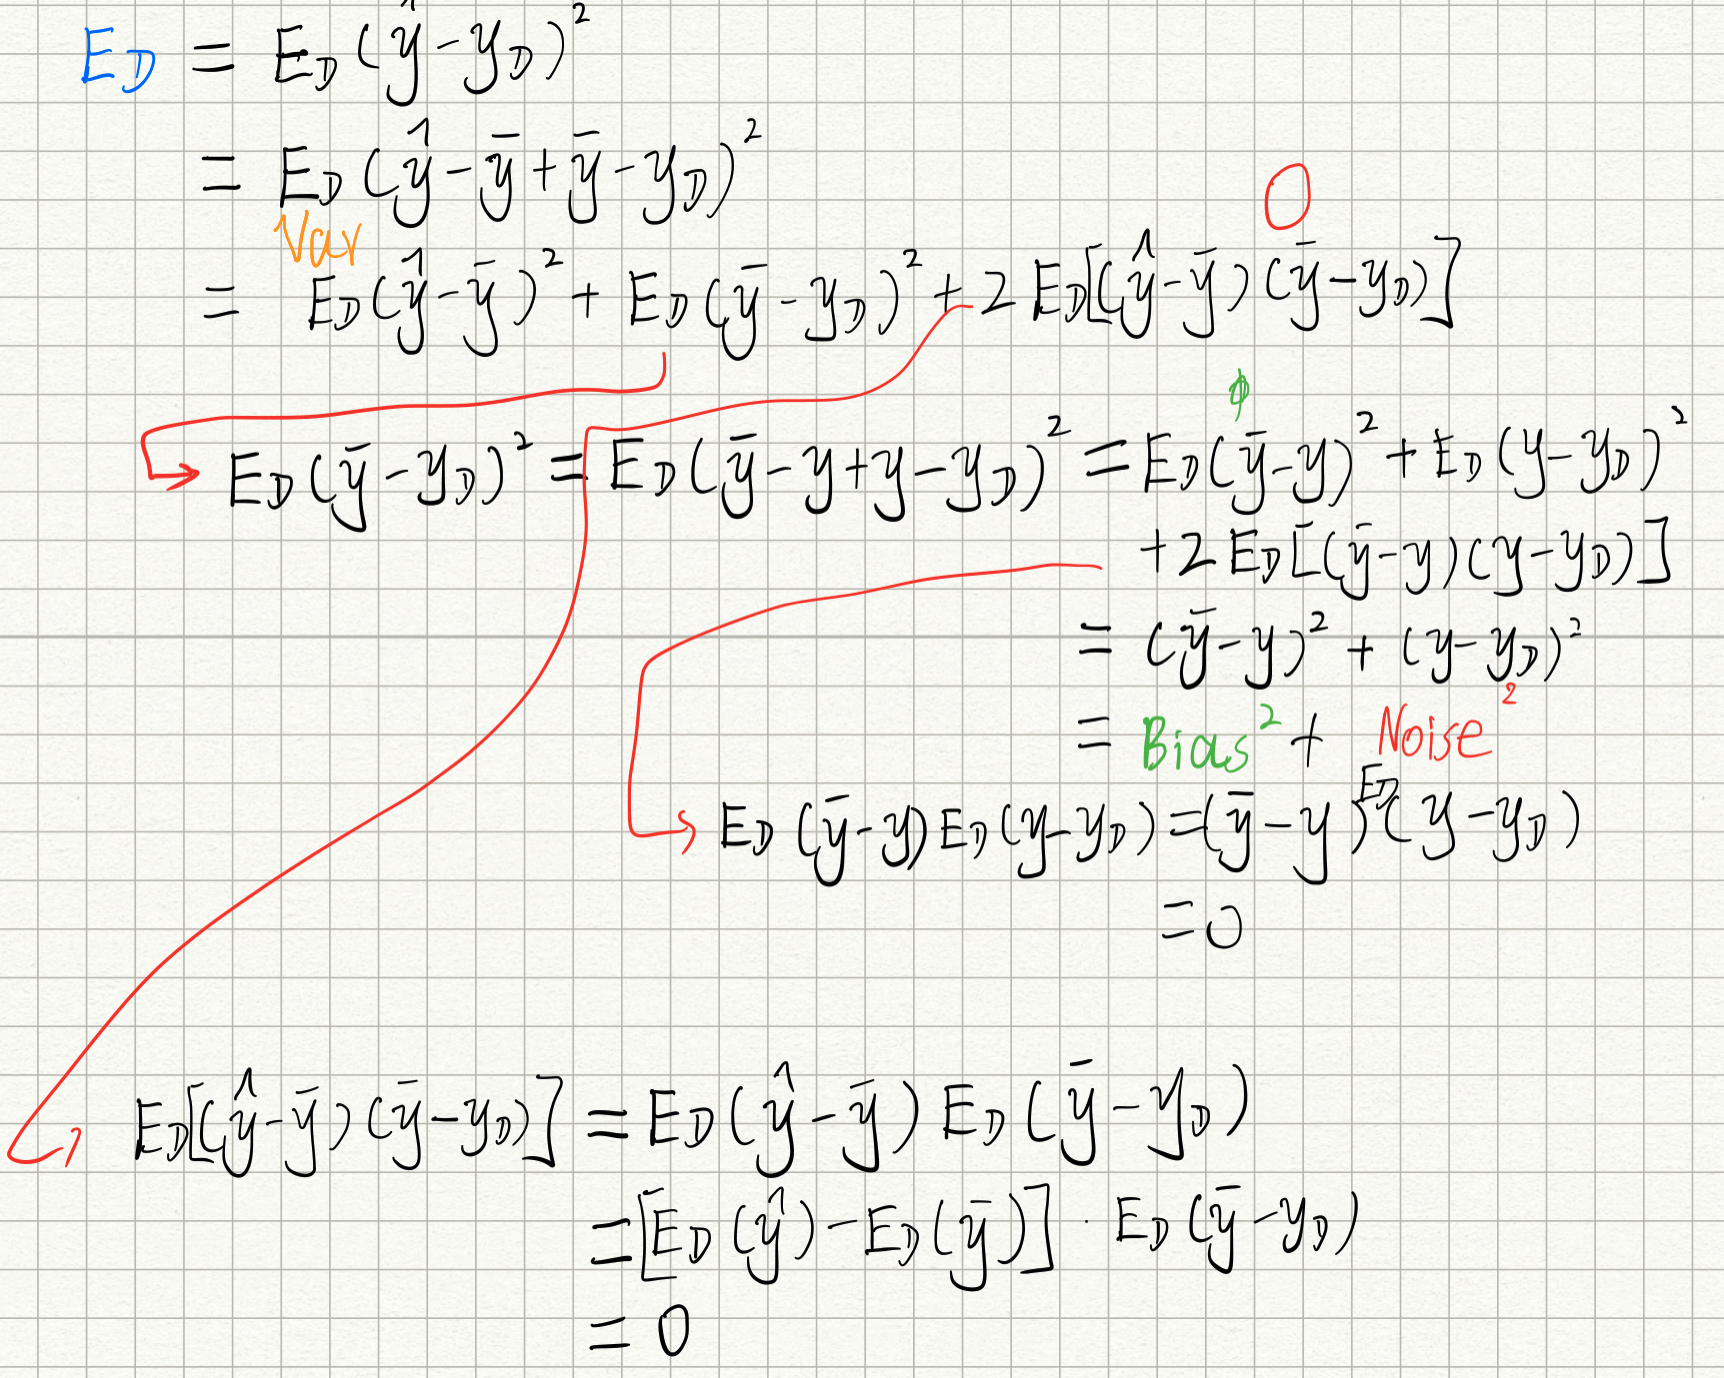 E_D = E_D(ŷ-y_D)²
= E_D(ŷ-ȳ+ȳ-y_D)²
Var 0
= E_D(ŷ-ȳ)² + E_D(ȳ-y_D)² + 2E_D[(ŷ-ȳ)(ȳ-y_D)]
E_D(ȳ-y_D)² = E_D(ȳ-y+y-y_D)² = E_D(ȳ-y)² + E_D(y-y_D)²
+2E_D[(ȳ-y)(y-y_D)]
= (ȳ-y)² + (y-y_D)²
= Bias² + Noise²
E_D(ȳ-y)E_D(y-y_D) = (ȳ-y)E_D(y-y_D)
=0
E_D[(ŷ-ȳ)(ȳ-y_D)] = E_D(ŷ-ȳ)E_D(ȳ-y_D)
=[E_D(ŷ)-E_D(ȳ)]·E_D(ȳ-y_D)
=0